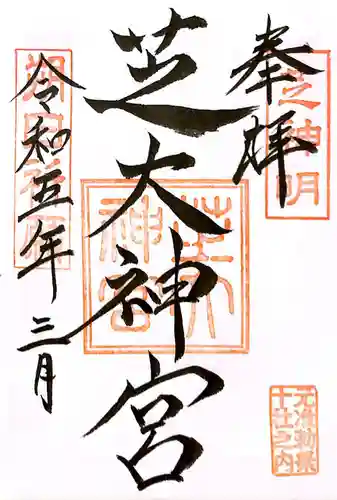 奉拝
芝神明
芝大神宮
芝大神宮
令和五年三月
元准勅祭
十社之内